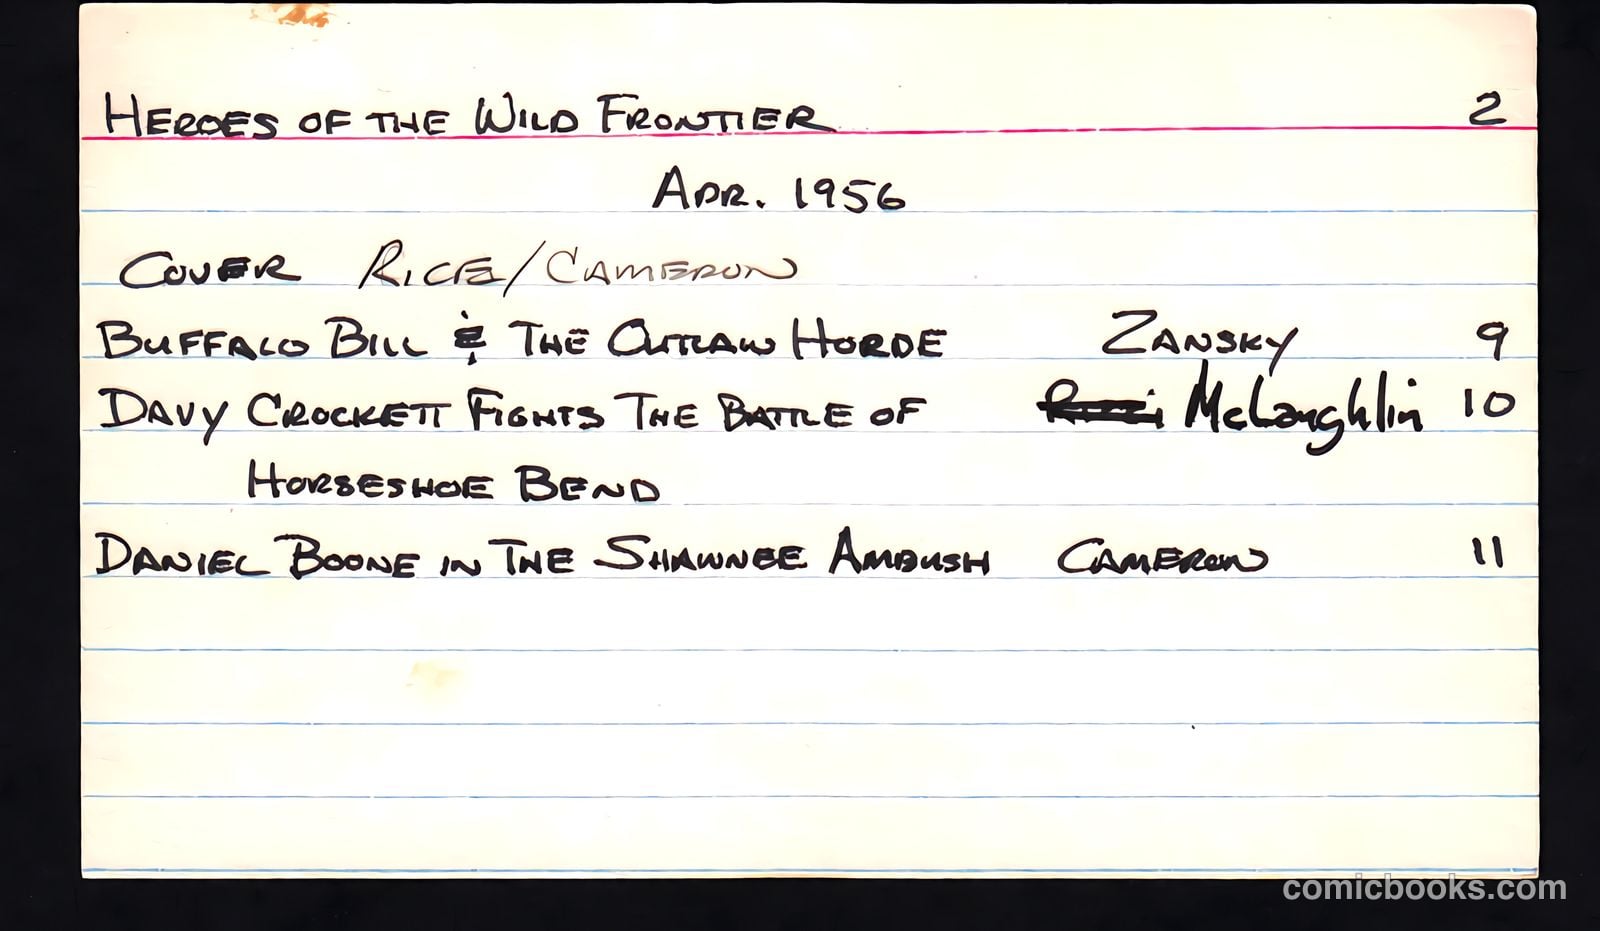 HEROES OF THE WILD FRONTIER 2
APR. 1956
COVER RICE/CAMERON
BUFFALO BILL & THE OUTLAW HORDE ZANSKY 9
DAVY CROCKETT FIGHTS THE BATTLE OF McLaughlin 10
HORSESHOE BEND
DANIEL BOONE IN THE SHAWNEE AMBUSH CAMERON 11
comicbooks.com